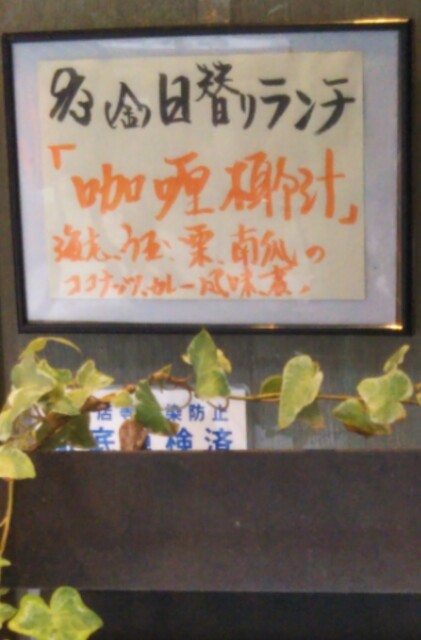 9/3(金)日替りランチ
「咖喱椰汁」
海老、う玉、栗、南瓜の
ココナッツ、カレー風味煮。
染防止
底 検済